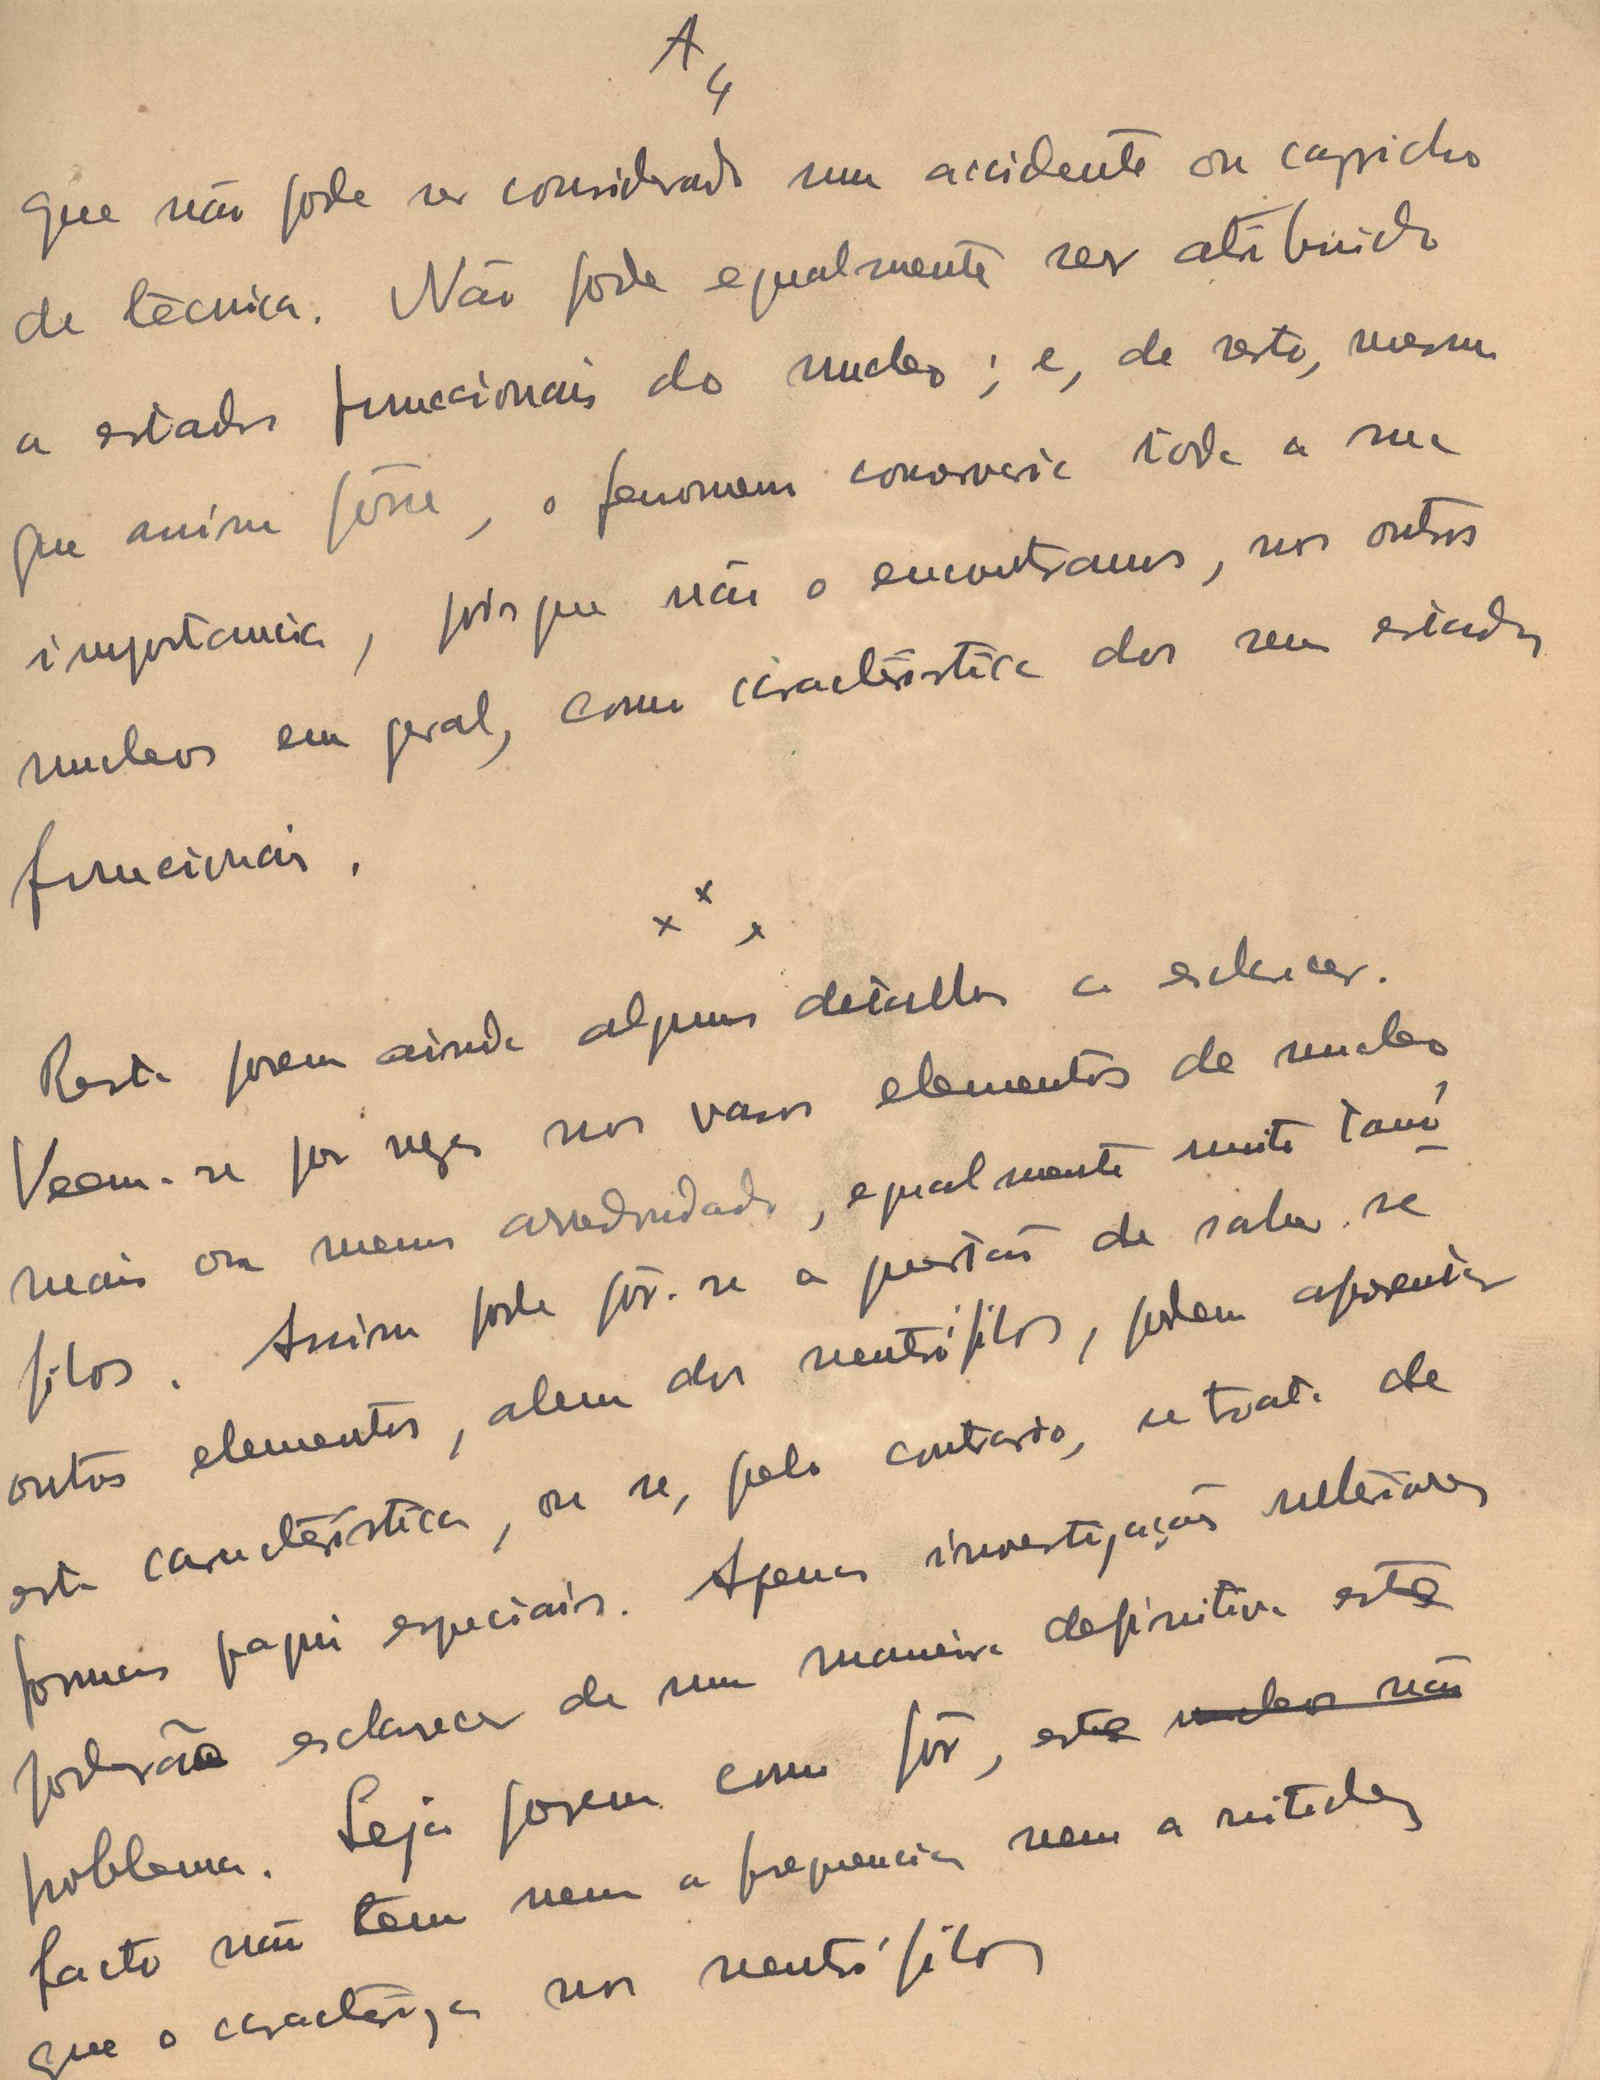 A
4
que não pode ser considerado um accidente ou capricho
de técnica. Não pode egualmente ser atribuido
a estados funccionais do nucleo; e, de resto, mesmo
que assim fôsse, o fenomeno conservaria toda a sua
importancia, pois que não o encontramos, nos outros
nucleos em geral, como caracteristica dos seus estados
funcionais.
x x x
Resta porem ainda alguns detalhes a esclarecer.
Veem-se por vezes nos vasos elementos de nucleo
mais ou menos arredondado, egualmente muito
filos. Assim pode pôr-se a questão de saber se
outros elementos, alem dos neutrófilos, podem apresentar
esta caracteristica, ou se, pelo contrario, se trata de
formas especiais. Apenas investigações ulteriores
poderão esclarecer de uma maneira definitiva este
problema. Seja porem como fôr, este nucleos não
facto não tem nem a frequencia nem a nitidez
que o caracteriza nos neutrófilos